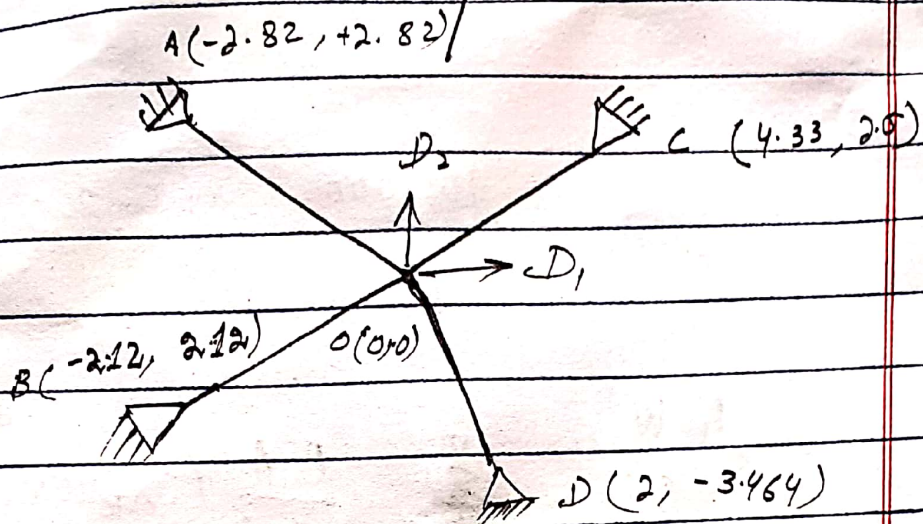 A(-2.82, +2.82)
C (4.33, 2.5)
D2
D1
B(-2.12, 2.12)
O(0,0)
D (2, -3.464)